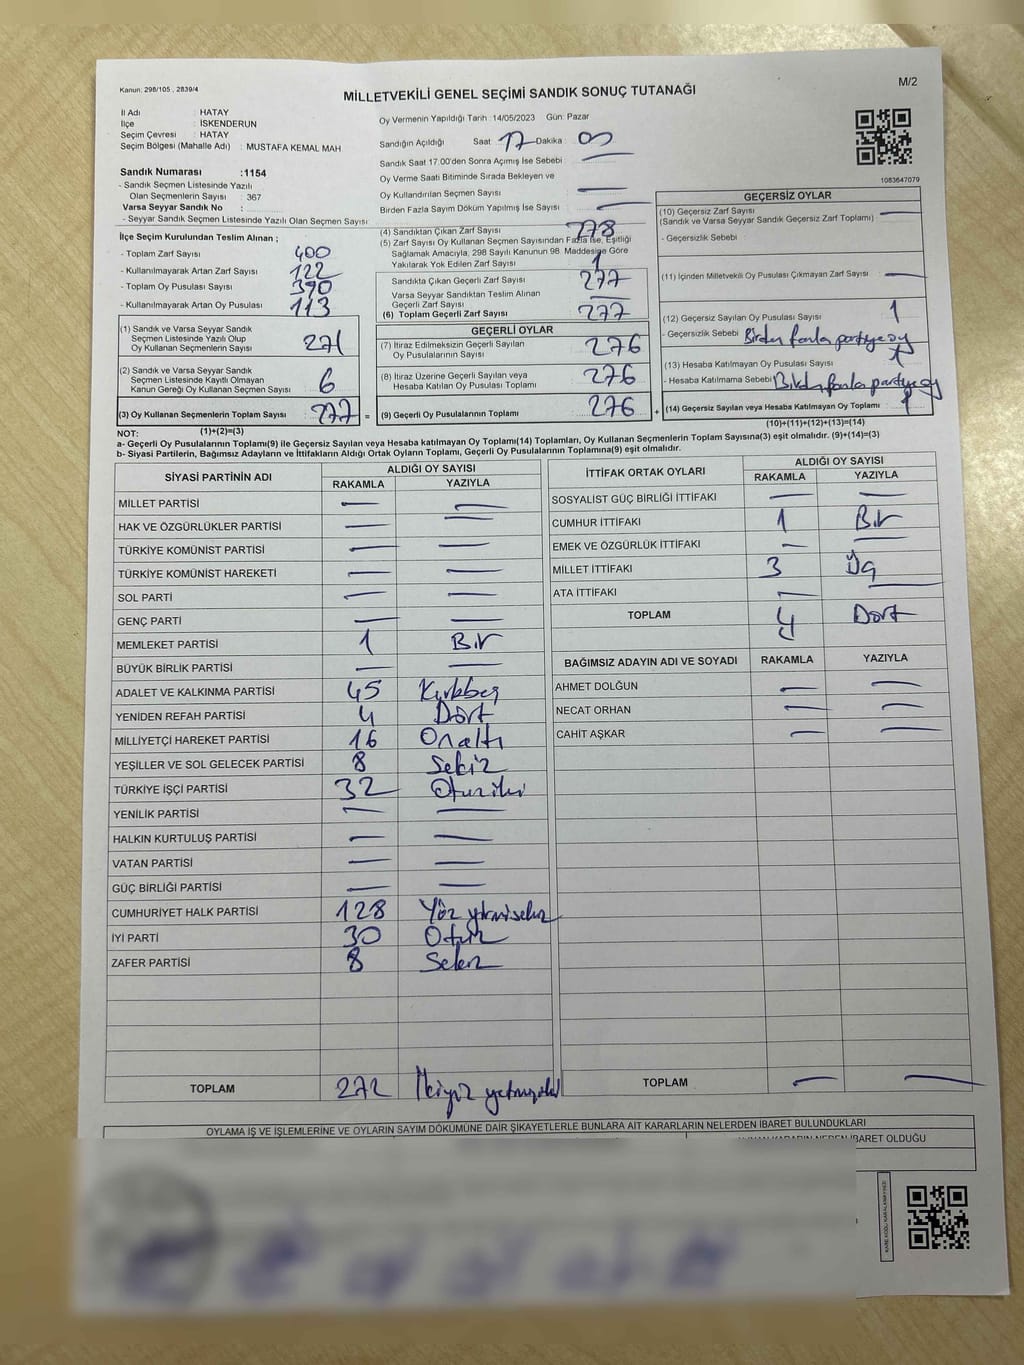 Kanun: 298/105 , 2839/4
M/2
MİLLETVEKİLİ GENEL SEÇİMİ SANDIK SONUÇ TUTANAĞI
İl Adı : HATAY
İlçe : İSKENDERUN
Seçim Çevresi : HATAY
Seçim Bölgesi (Mahalle Adı) : MUSTAFA KEMAL MAH
Sandık Numarası :1154
- Sandık Seçmen Listesinde Yazılı
Olan Seçmenlerin Sayısı : 367
Varsa Seyyar Sandık No :
- Seyyar Sandık Seçmen Listesinde Yazılı Olan Seçmen Sayısı
Oy Vermenin Yapıldığı Tarih :14/05/2023 Gün: Pazar
Sandığın Açıldığı Saat 17 Dakika : 00
Sandık Saat 17.00'den Sonra Açımış İse Sebebi : —
Oy Verme Saati Bitiminde Sırada Bekleyen ve
Oy Kullandırılan Seçmen Sayısı : —
Birden Fazla Sayım Döküm Yapılmış İse Sayısı : —
1083647079
İlçe Seçim Kurulundan Teslim Alınan ;
- Toplam Zarf Sayısı : 400
- Kullanılmayarak Artan Zarf Sayısı : 122
- Toplam Oy Pusulası Sayısı : 390
- Kullanılmayarak Artan Oy Pusulası : 113
(1) Sandık ve Varsa Seyyar Sandık
Seçmen Listesinde Yazılı Olup
Oy Kullanan Seçmenlerin Sayısı : 271
(2) Sandık ve Varsa Seyyar Sandık
Seçmen Listesinde Kayıtlı Olmayan
Kanun Gereği Oy Kullanan Seçmen Sayısı : 6
(3) Oy Kullanan Seçmenlerin Toplam Sayısı : 277 =
(1)+(2)=(3)
(4) Sandıktan Çıkan Zarf Sayısı : 278
(5) Zarf Sayısı Oy Kullanan Seçmen Sayısından Fazla İse, Eşitliği
Sağlamak Amacıyla, 298 Sayılı Kanunun 98. Maddesine Göre
Yakılarak Yok Edilen Zarf Sayısı : 1
Sandıkta Çıkan Geçerli Zarf Sayısı : 277
Varsa Seyyar Sandıktan Teslim Alınan
Geçerli Zarf Sayısı : —
(6) Toplam Geçerli Zarf Sayısı : 277
GEÇERLİ OYLAR
(7) İtiraz Edilmeksizin Geçerli Sayılan
Oy Pusulalarının Sayısı : 276
(8) İtiraz Üzerine Geçerli Sayılan veya
Hesaba Katılan Oy Pusulası Toplamı : 276
(9) Geçerli Oy Pusulalarının Toplamı : 276 +
GEÇERSİZ OYLAR
(10) Geçersiz Zarf Sayısı : —
(Sandık ve Varsa Seyyar Sandık Geçersiz Zarf Toplamı)
- Geçersizlik Sebebi :
(11) İçinden Milletvekili Oy Pusulası Çıkmayan Zarf Sayısı : —
(12) Geçersiz Sayılan Oy Pusulası Sayısı : 1
- Geçersizlik Sebebi : Birden fazla partiye oy
(13) Hesaba Katılmayan Oy Pusulası Sayısı :
- Hesaba Katılmama Sebebi : Birden fazla partiye oy
(14) Geçersiz Sayılan veya Hesaba Katılmayan Oy Toplamı : 1
(10)+(11)+(12)+(13)=(14)
NOT:
a- Geçerli Oy Pusulalarının Toplamı(9) ile Geçersiz Sayılan veya Hesaba katılmayan Oy Toplamı(14) Toplamları, Oy Kullanan Seçmenlerin Toplam Sayısına(3) eşit olmalıdır. (9)+(14)=(3)
b- Siyasi Partilerin, Bağımsız Adayların ve İttifakların Aldığı Ortak Oyların Toplamı, Geçerli Oy Pusulalarının Toplamına(9) eşit olmalıdır.
SİYASİ PARTİNİN ADI ALDIĞI OY SAYISI
RAKAMLA YAZIYLA
MİLLET PARTİSİ — —
HAK VE ÖZGÜRLÜKLER PARTİSİ — —
TÜRKİYE KOMÜNİST PARTİSİ — —
TÜRKİYE KOMÜNİST HAREKETİ — —
SOL PARTİ — —
GENÇ PARTİ — —
MEMLEKET PARTİSİ 1 Bir
BÜYÜK BİRLİK PARTİSİ — —
ADALET VE KALKINMA PARTİSİ 45 Kırkbeş
YENİDEN REFAH PARTİSİ 4 Dört
MİLLİYETÇİ HAREKET PARTİSİ 16 Onaltı
YEŞİLLER VE SOL GELECEK PARTİSİ 8 Sekiz
TÜRKİYE İŞÇİ PARTİSİ 32 Otuziki
YENİLİK PARTİSİ — —
HALKIN KURTULUŞ PARTİSİ — —
VATAN PARTİSİ — —
GÜÇ BİRLİĞİ PARTİSİ — —
CUMHURİYET HALK PARTİSİ 128 Yüz yirmisekiz
İYİ PARTİ 30 Otuz
ZAFER PARTİSİ 8 Sekiz
TOPLAM 272 İkiyüz yetmişiki
İTTİFAK ORTAK OYLARI ALDIĞI OY SAYISI
RAKAMLA YAZIYLA
SOSYALİST GÜÇ BİRLİĞİ İTTİFAKI — —
CUMHUR İTTİFAKI 1 Bir
EMEK VE ÖZGÜRLÜK İTTİFAKI — —
MİLLET İTTİFAKI 3 Üç
ATA İTTİFAKI — —
TOPLAM 4 Dört
BAĞIMSIZ ADAYIN ADI VE SOYADI RAKAMLA YAZIYLA
AHMET DOLĞUN — —
NECAT ORHAN — —
CAHİT AŞKAR — —
TOPLAM — —
OYLAMA İŞ VE İŞLEMLERİNE VE OYLARIN SAYIM DÖKÜMÜNE DAİR ŞİKAYETLERLE BUNLARA AİT KARARLARIN NELERDEN İBARET BULUNDUKLARI
İBARET OLDUĞU